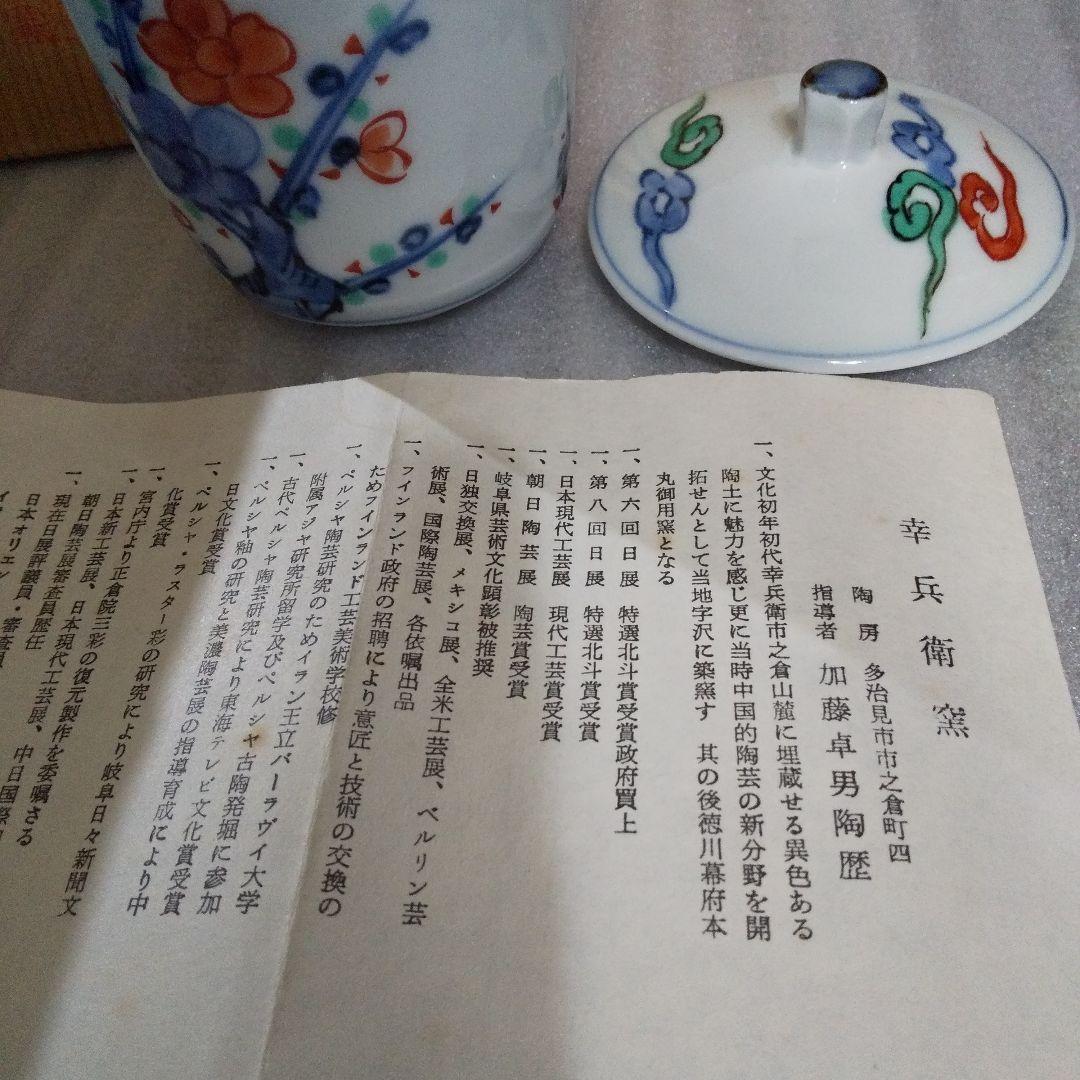 幸兵衛窯
陶房 多治見市市之倉町四
指導者 加藤卓男陶歴
一、文化初年初代幸兵衛市之倉山麓に埋蔵せる異色ある
陶土に魅力を感じ更に当時中国的陶芸の新分野を開
拓せんとして当地字沢に築窯す 其の後徳川幕府本
丸御用窯となる
一、第六回日展 特選北斗賞受賞政府買上
一、第八回日展 特選北斗賞受賞
一、日本現代工芸展 現代工芸賞受賞
一、朝日陶芸展 陶芸賞受賞
一、岐阜県芸術文化顕彰被推奨
一、日独交換展、メキシコ展、全米工芸展、ベルリン芸
術展、国際陶芸展、各依嘱出品
一、フインランド政府の招聘により意匠と技術の交換の
ためフインランド工芸美術学校修
一、ペルシャ陶芸研究のためイラン王立パーラヴイ大学
附属アジャ研究所留学及びペルシャ古陶発掘に参加
一、古代ペルシャ陶芸研究により東海テレビ文化賞受賞
一、ペルシャ釉の研究と美濃陶芸展の指導育成により中
日文化賞受賞
一、ペルシャ・ラスター彩の研究により岐阜日々新聞文
化賞受賞
一、宮内庁より正倉院三彩の復元製作を委嘱さる
一、日本新工芸展、日本現代工芸展、中日国際
朝日陶芸展審査員歴任
一、現在日展評議員・審査員
日本オリエン